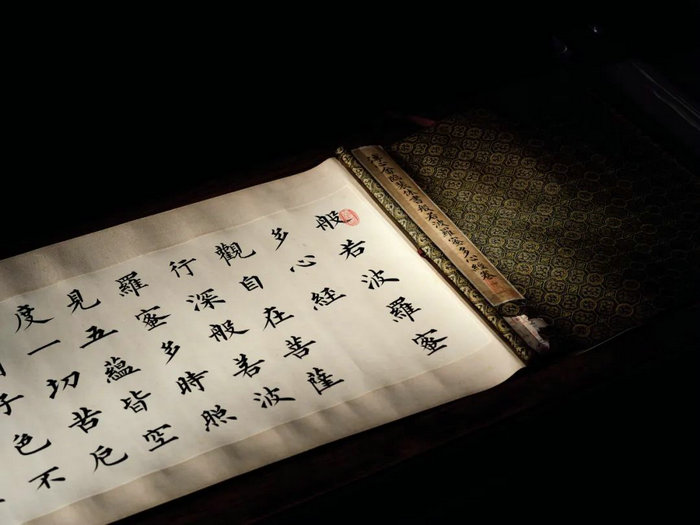 般若波羅蜜
多心經
觀自在菩薩
行深般若波
羅蜜多時照
見五蘊皆空
度一切苦厄
子色不
書般若波羅蜜多心經